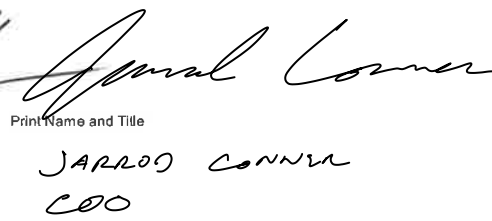 Jarrod Conner
Print Name and Title
JARROD CONNER
COO